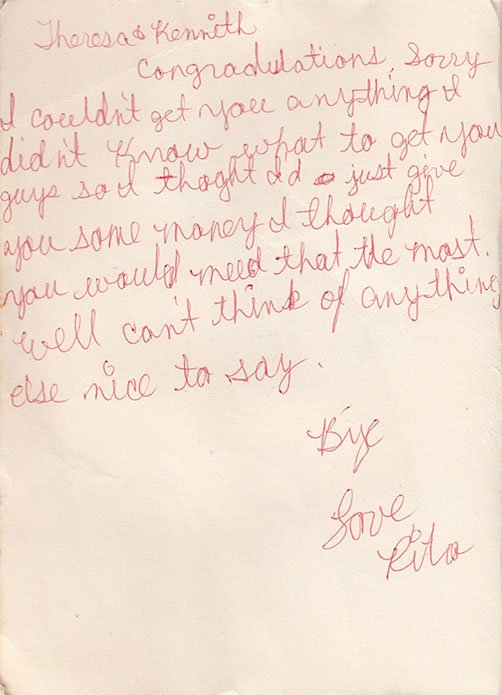 Theresa & Kenneth
Congradulations, Sorry
I couldn't get you anything I
didn't know what to get you
guys so I thoght Id just give
you some money I thought
you would need that the most.
Well can't think of anything
else nice to say.
Bye
Love,
Rita